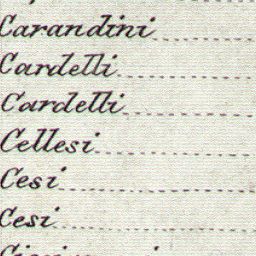 Carandini
Cardelli
Cardelli
Cellesi
Cesi
Cesi